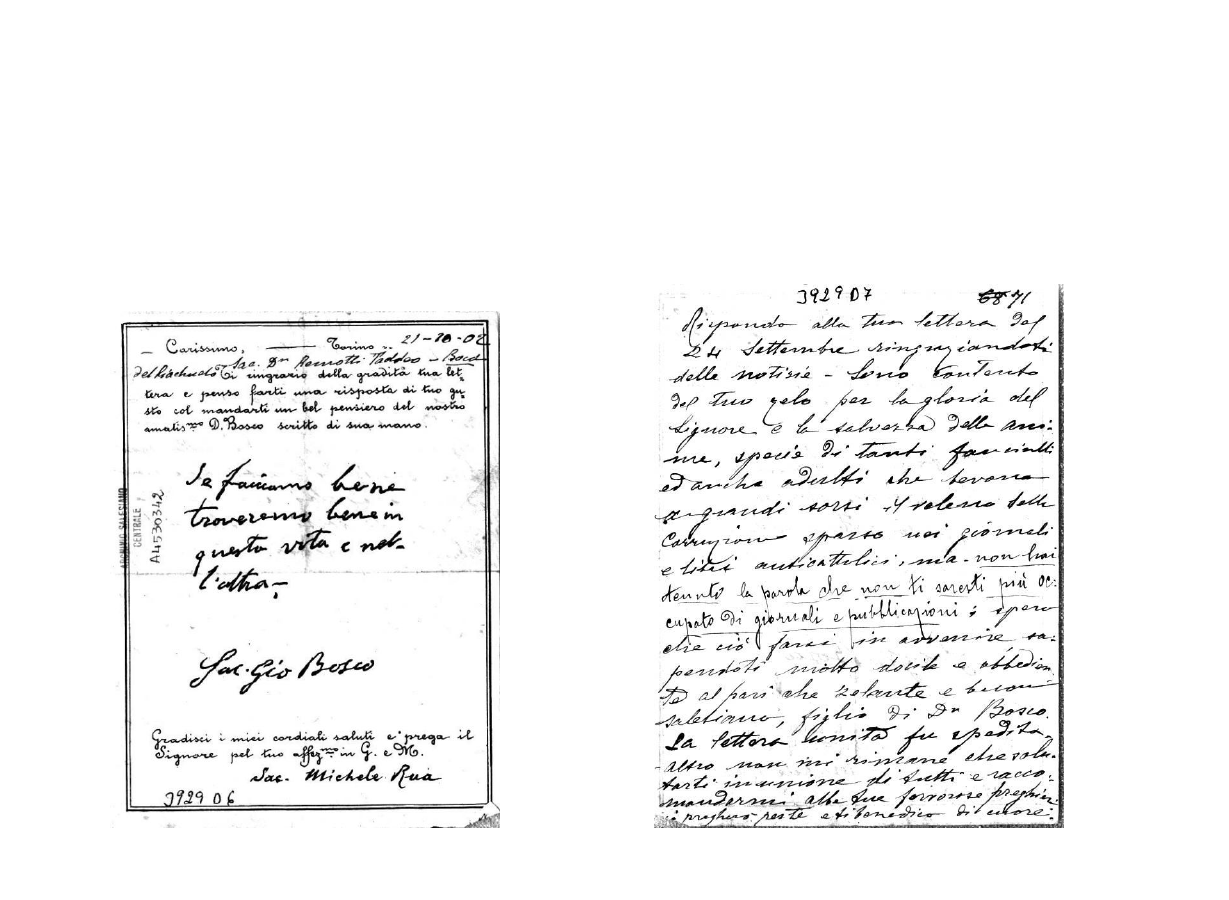 Carissimo, Torino .. 21-10-02
Sac. Dn Remotti Taddeo - Boca
del Riachuelo Ti ringrazio della gradita tua let-
tera e penso farti una risposta di tuo gu-
sto col mandarti un bel pensiero del nostro
amatismo D. Bosco scritto di sua mano.
Se facciamo bene
troveremo bene in
questa vita e nel-
l'altra -
Sac. Gio Bosco
Gradisci i miei cordiali saluti e prega il
Signore pel tuo affezmo in G. e M.
Sac. Michele Rua
3929 D6
ARCHIVIO SALESIANO
CENTRALE
A4530342
3929 D7
68 71
Rispondo alla tua lettera del
24 Settembre ringraziandoti
delle notizie - Sono contento
del tuo zelo per la gloria del
Signore e la salvezza delle ani-
me, specie di tanti fanciulli
ed anche adulti che bevono
a grandi sorsi il veleno della
corruzione sparso nei giornali
e libri anticattolici, ma non hai
tenuto la parola che non ti saresti più oc-
cupato di giornali e pubblicazioni; spero
che ciò farai in avvenire sa-
pendoti molto docile e obbedien-
te al pari che zelante e buon
salesiano, figlio di Dn Bosco.
La lettera unita fu spedita,
altro non mi rimane che salu-
tarti in unione di tutti e racco-
mandarmi alle tue fervorose preghier
preghiere e ti benedico di cuore: